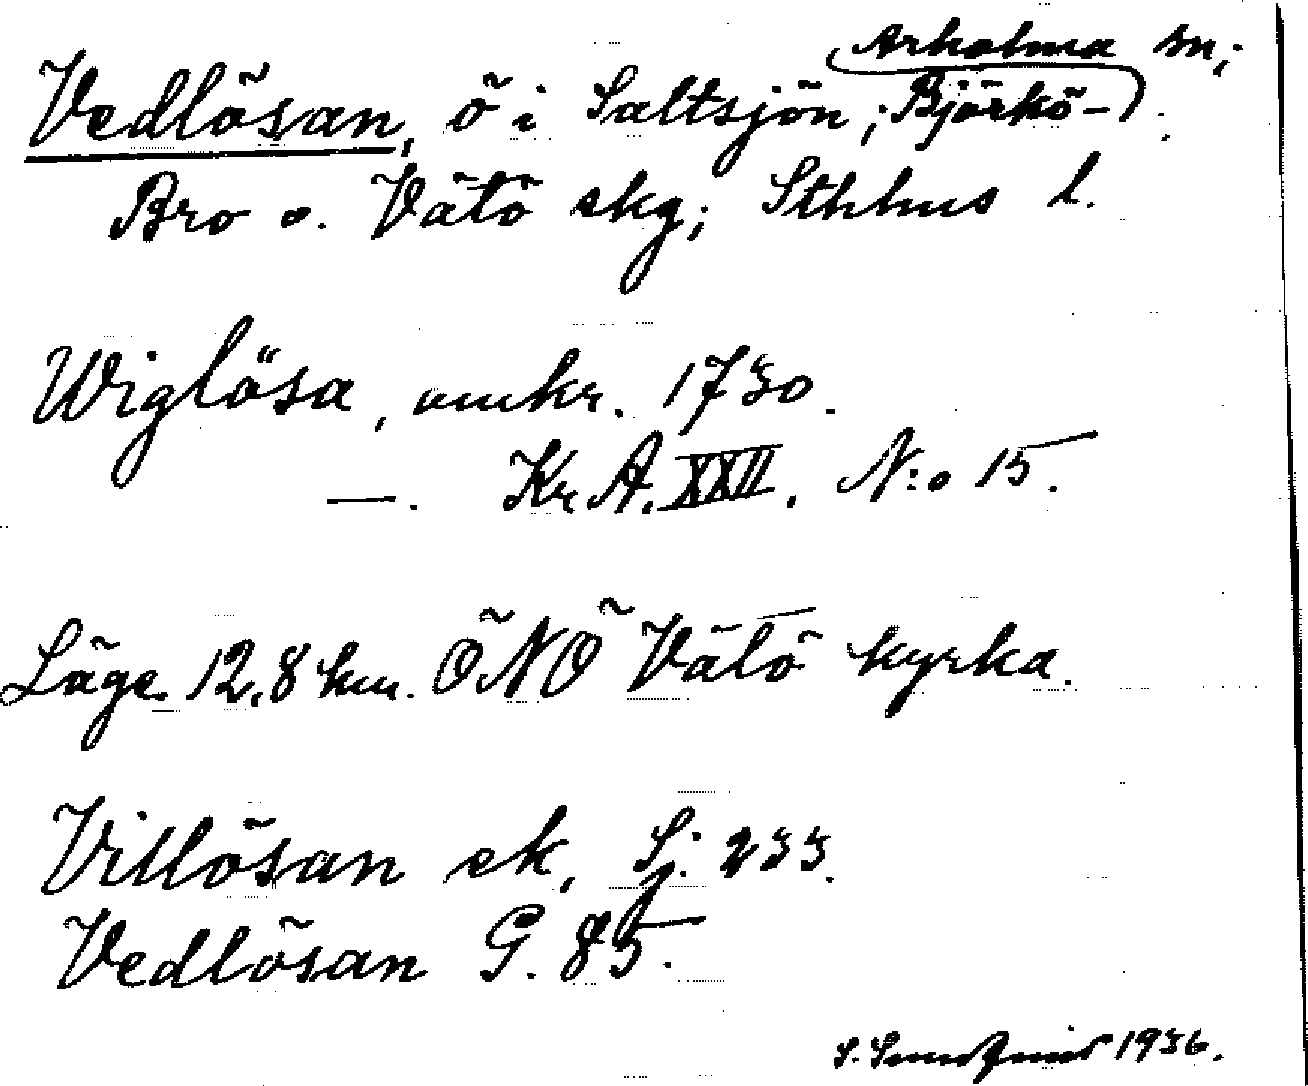 Vedlösan, ö i Saltsjön; Björkö-Arholma sn;
Bro o. Vätö skg; Sthhus l.
Wiglösa, omkr. 1730.
—. Kr A. XXII. N:o 15.
Läge 12,8 km. ÖNÖ Vätö kyrka.
Villösan sk, Sj. 233.
Vedlösan G. 85.
S. 1936.